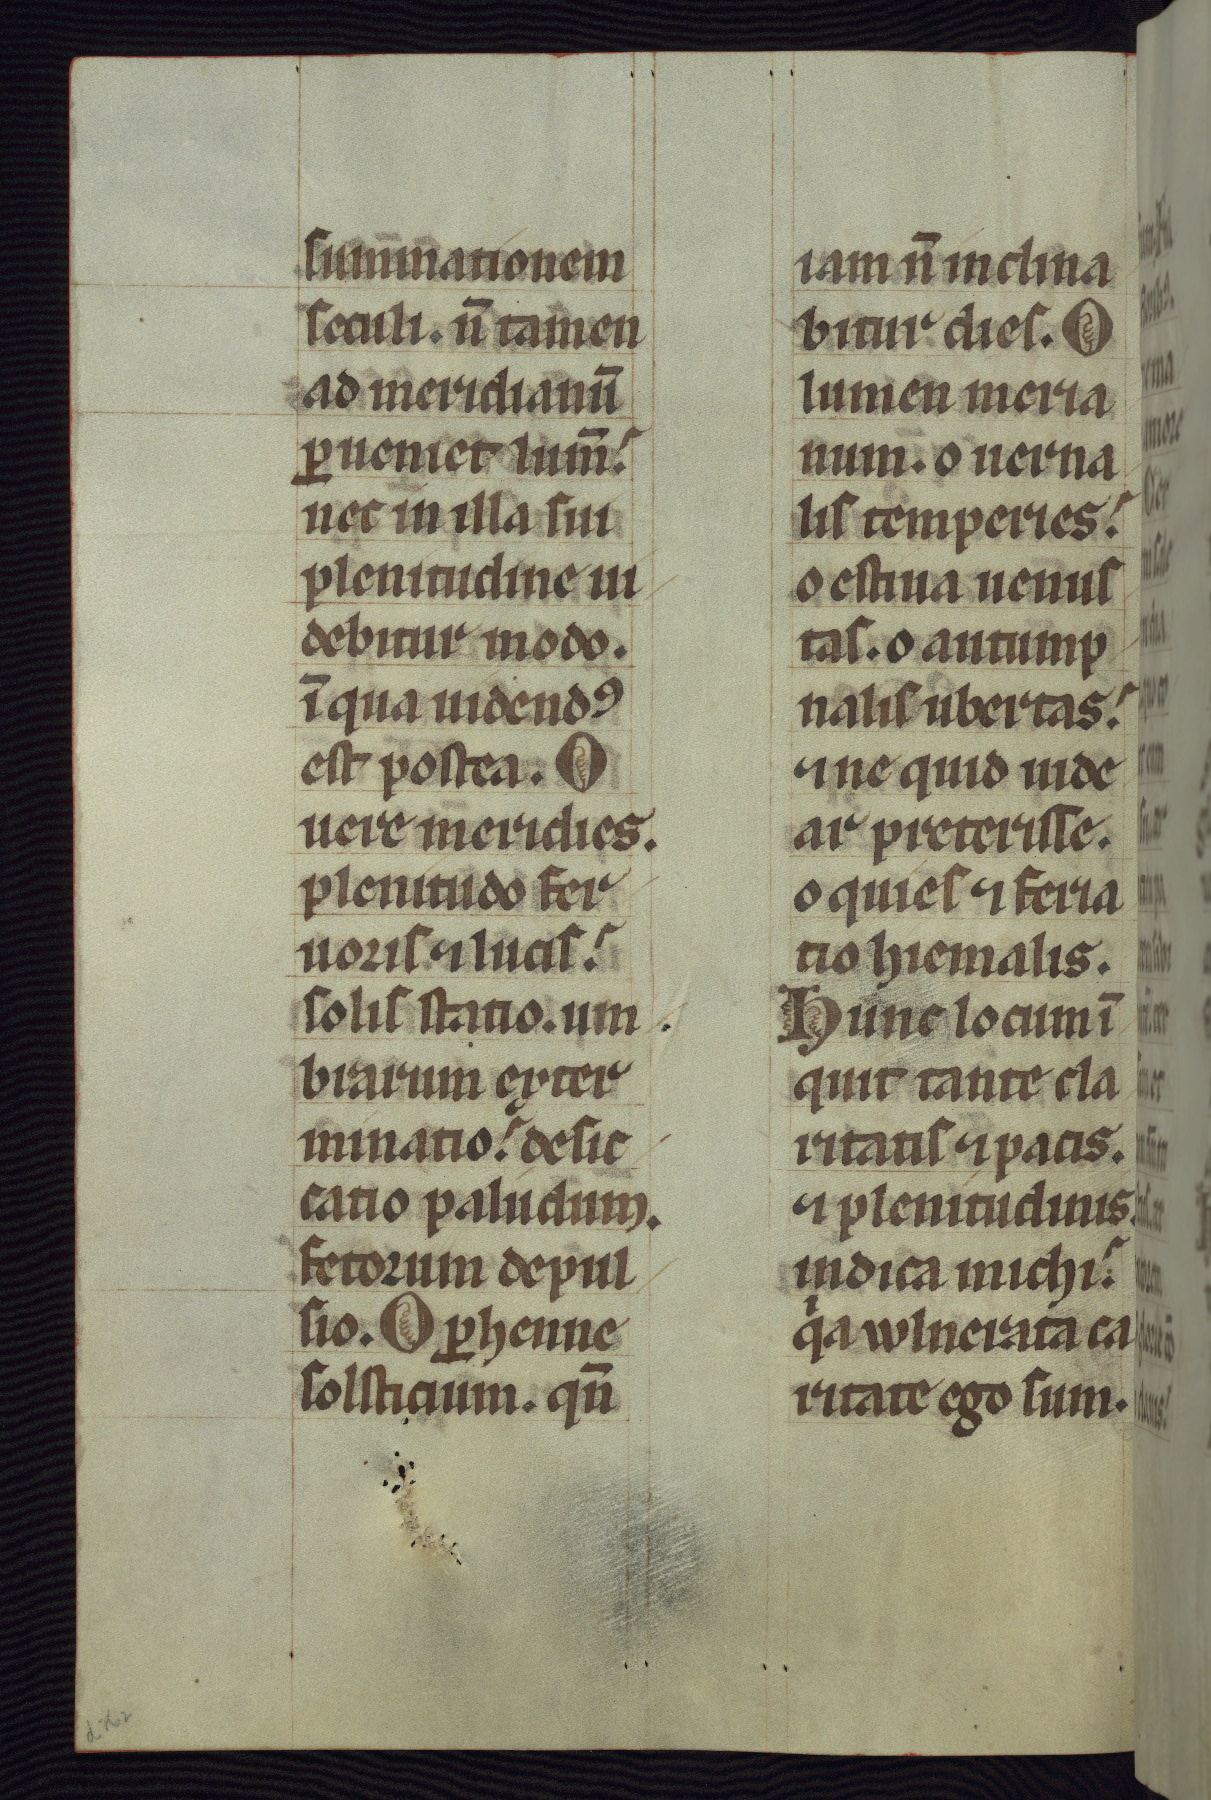 summationem
seculi. n̄ tamen
ad meridianū
ꝑueniet lum̄.
nec in illa sui
plenitudine ui
debitur modo.
ī qua uidendꝰ
est postea. O
uere meridies.
plenitudo fer
uoris ⁊ lucis.
solis statio. um
brarum exter
minatio. desic
catio paludum.
fetorum depul
sio. O ꝑhenne
solsticium. qn̄
iam n̄ inclina
bitur dies. O
lumen meria
num. o uerna
lis temperies.
o estiua uenus
tas. o autump
nalis ubertas.
⁊ ne quid uide
ar preterisse.
o quies ⁊ feria
tio hiemalis.
Hunc locum ī
quit tante cla
ritatis ⁊ pacis.
⁊ plenitudinis
indica michi.
qͥa wlnerata ca
ritate ego sum.